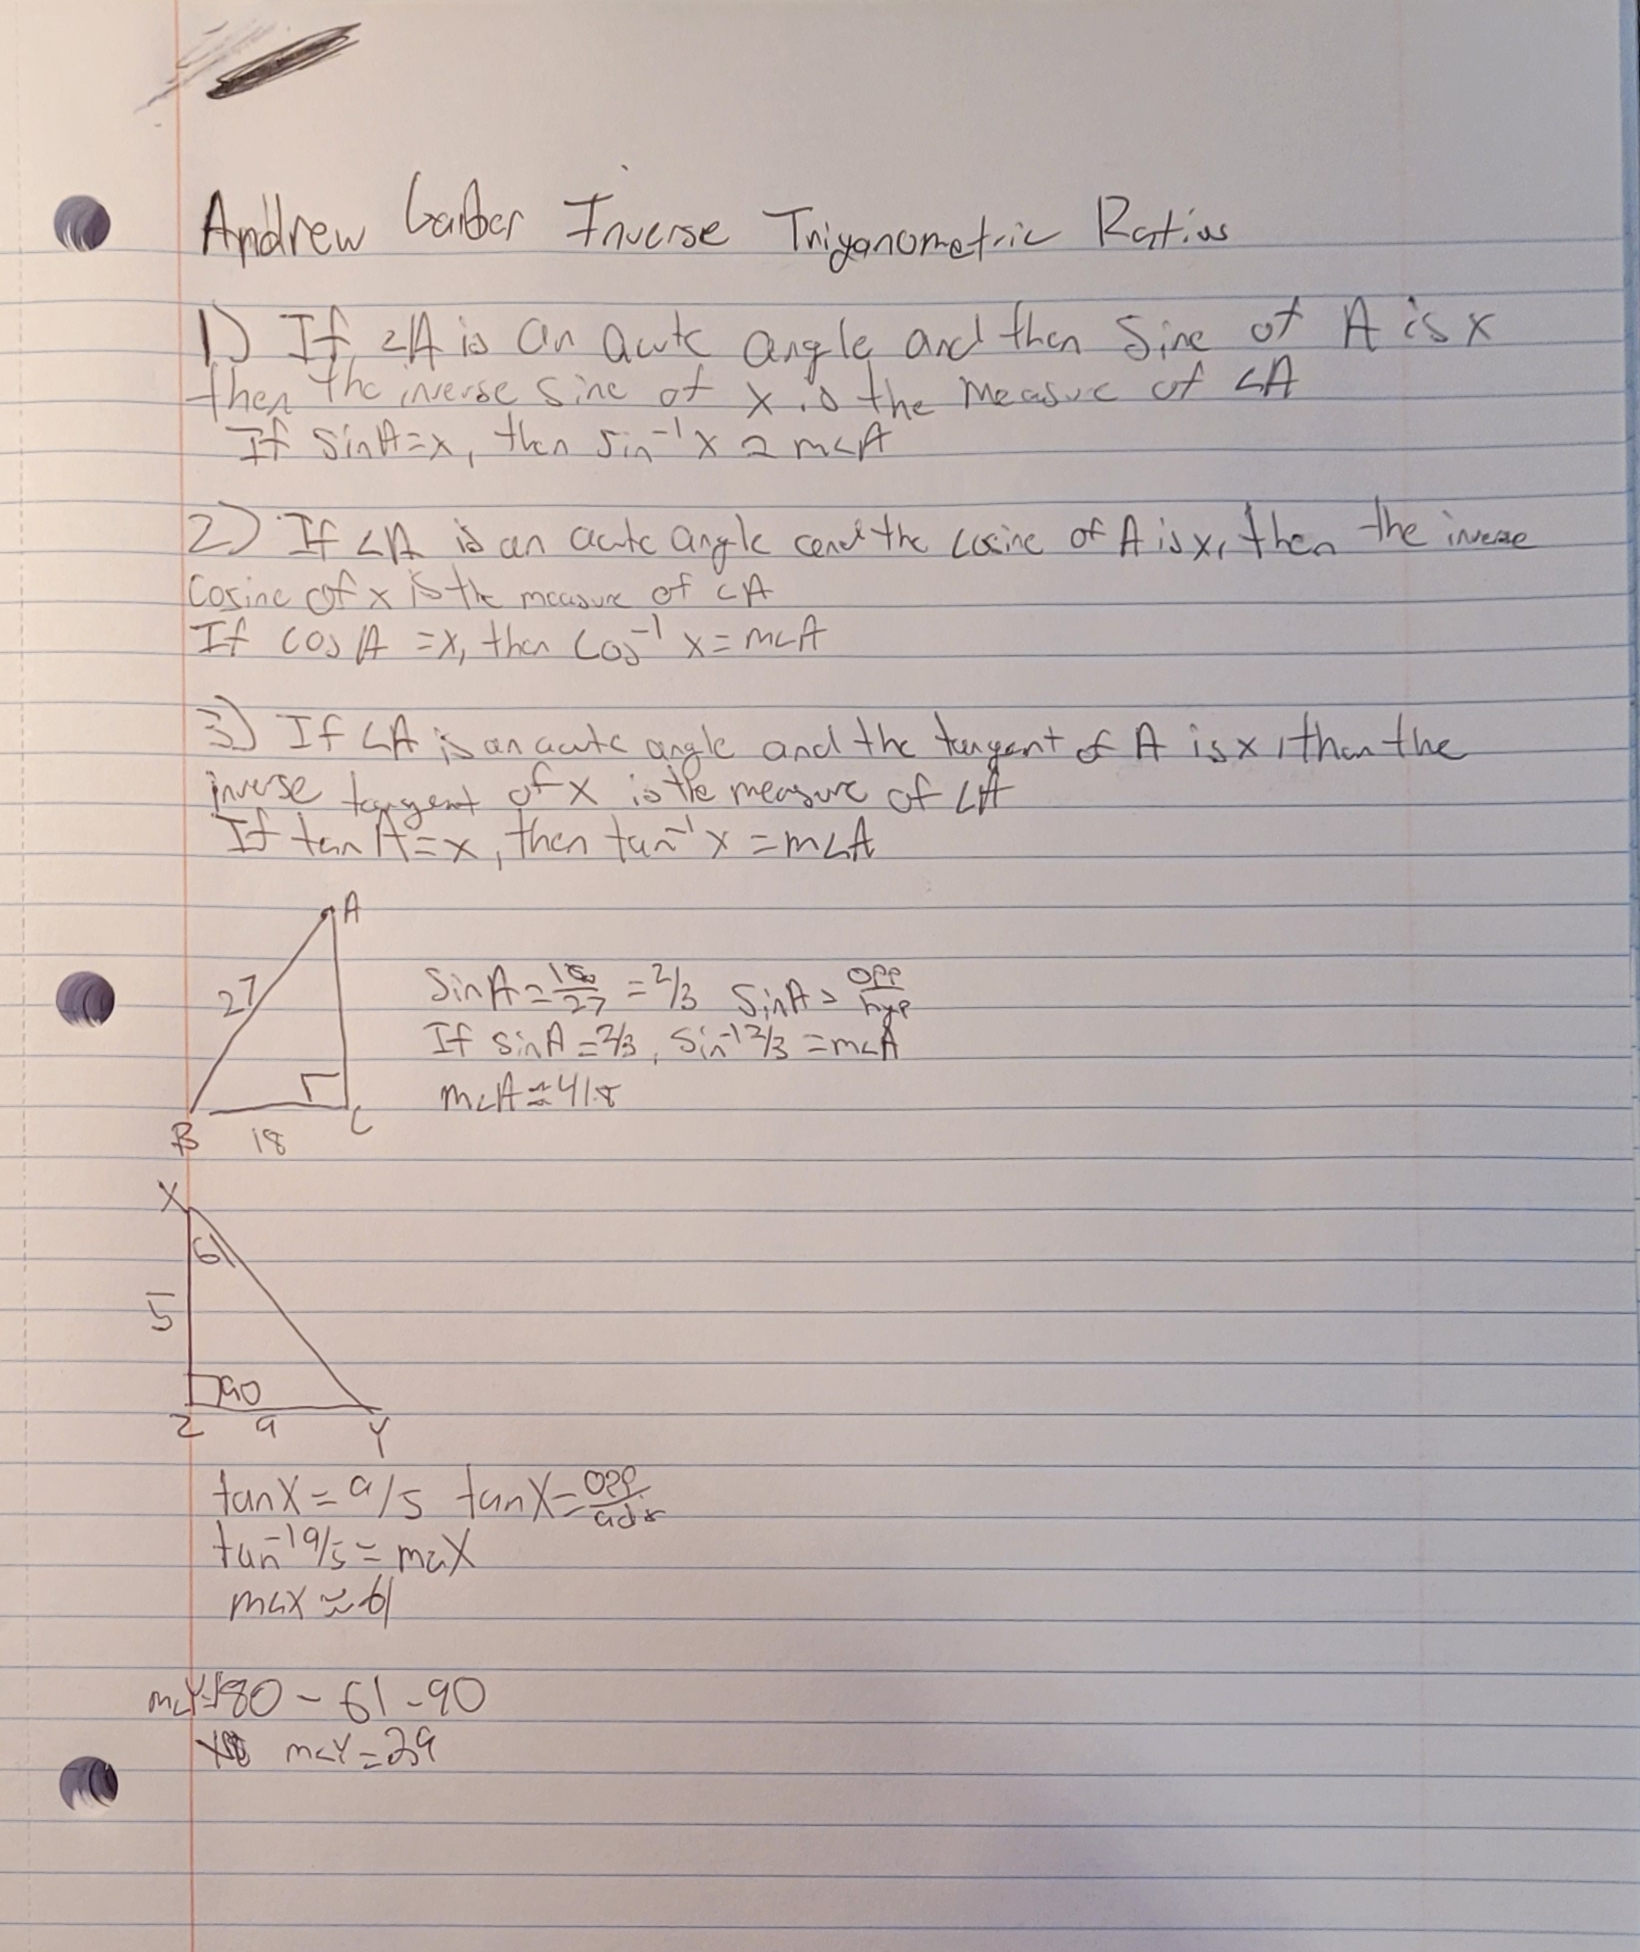 Andrew Garber Inverse Triganometric Ratios
1) If ∠A is an acute angle and then Sine of A is x
then the inverse sine of x is the measure of ∠A
If sinA=x, then sin⁻¹x = m∠A
2) If ∠A is an acute angle and the cosine of A is x, then the inverse
cosine of x is the measure of ∠A
If cosA =x, then cos⁻¹ x = m∠A
3) If ∠A is an acute angle and the tangent of A is x, then the
inverse tangent of x is the measure of ∠A
If tan A = x, then tan⁻¹ x = m∠A
A
27
B 18 C
sinA = 18/27 = 2/3 SinA = opp/hyp
If sinA = 2/3, sin⁻¹ 2/3 = m∠A
m∠A ≈ 41.8
X
61
5
90
Z 9 Y
tanX = 9/5 tanX = opp/adj
tan⁻¹ 9/5 = m∠X
m∠X ≈ 61
m∠Y=180 - 61 - 90
m∠Y = 29